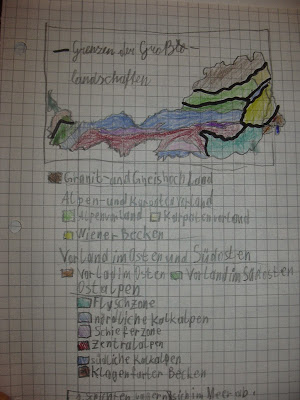 Grenzen der Großlandschaften
Granit- und Gneishochland
Alpen- und Karpatenvorland
Alpenvorland Karpatenvorland
Wiener Becken
Vorland im Osten und Südosten
Vorland im Osten Vorland im Südosten
Ostalpen
Flyschzone
nördliche Kalkalpen
Schieferzone
Zentralalpen
südliche Kalkalpen
Klagenfurter Becken